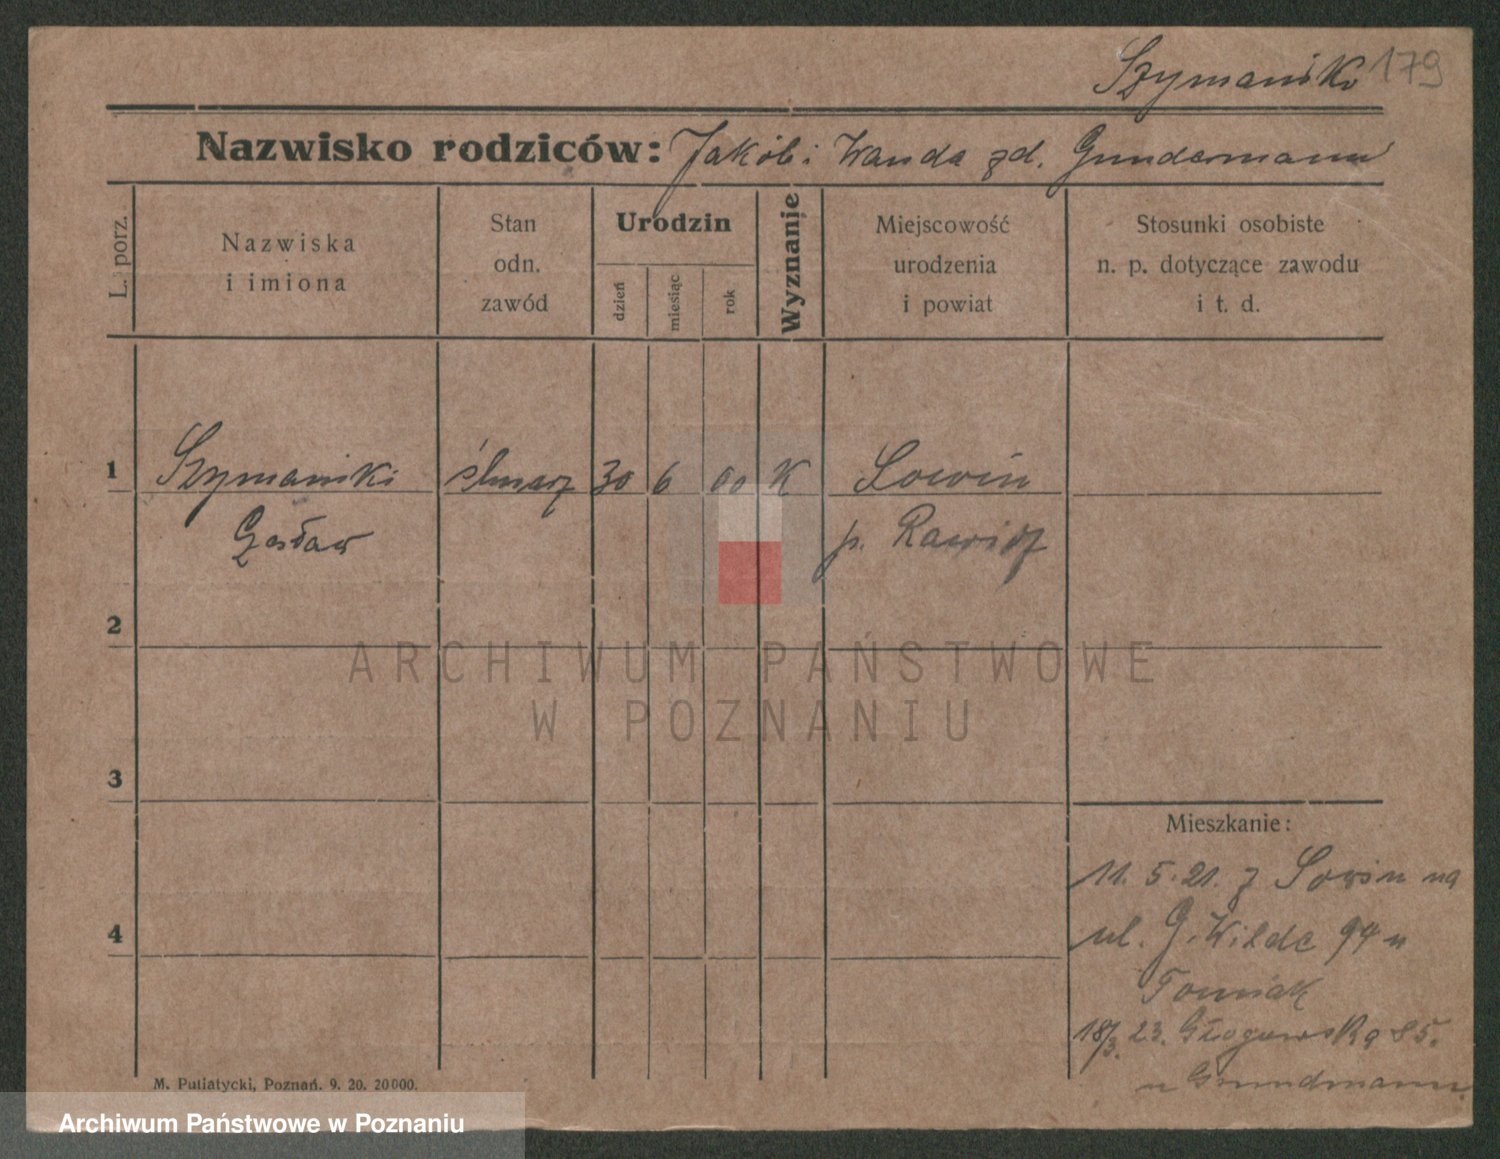 Szymański 179
Nazwisko rodziców: Jakób i Wanda zd. Gundermann
L. porz.
Nazwiska
i imiona
Stan
odn.
zawód
Urodzin
dzień
miesiąc
rok
Wyznanie
Miejscowość
urodzenia
i powiat
Stosunki osobiste
n. p. dotyczące zawodu
i t. d.
1 Szymański ślusarz 30 6 00 K Sowin
Czesław p. Rawicz
2
3
4
Mieszkanie:
11. 5. 21. z Sowin na
ul. G. Wilda 94 u
18/3. 23. Głogowska 85.
u Grundmann
M. Putiatycki, Poznań. 9. 20. 20000.
ARCHIWUM PAŃSTWOWE
W POZNANIU
Archiwum Państwowe w Poznaniu